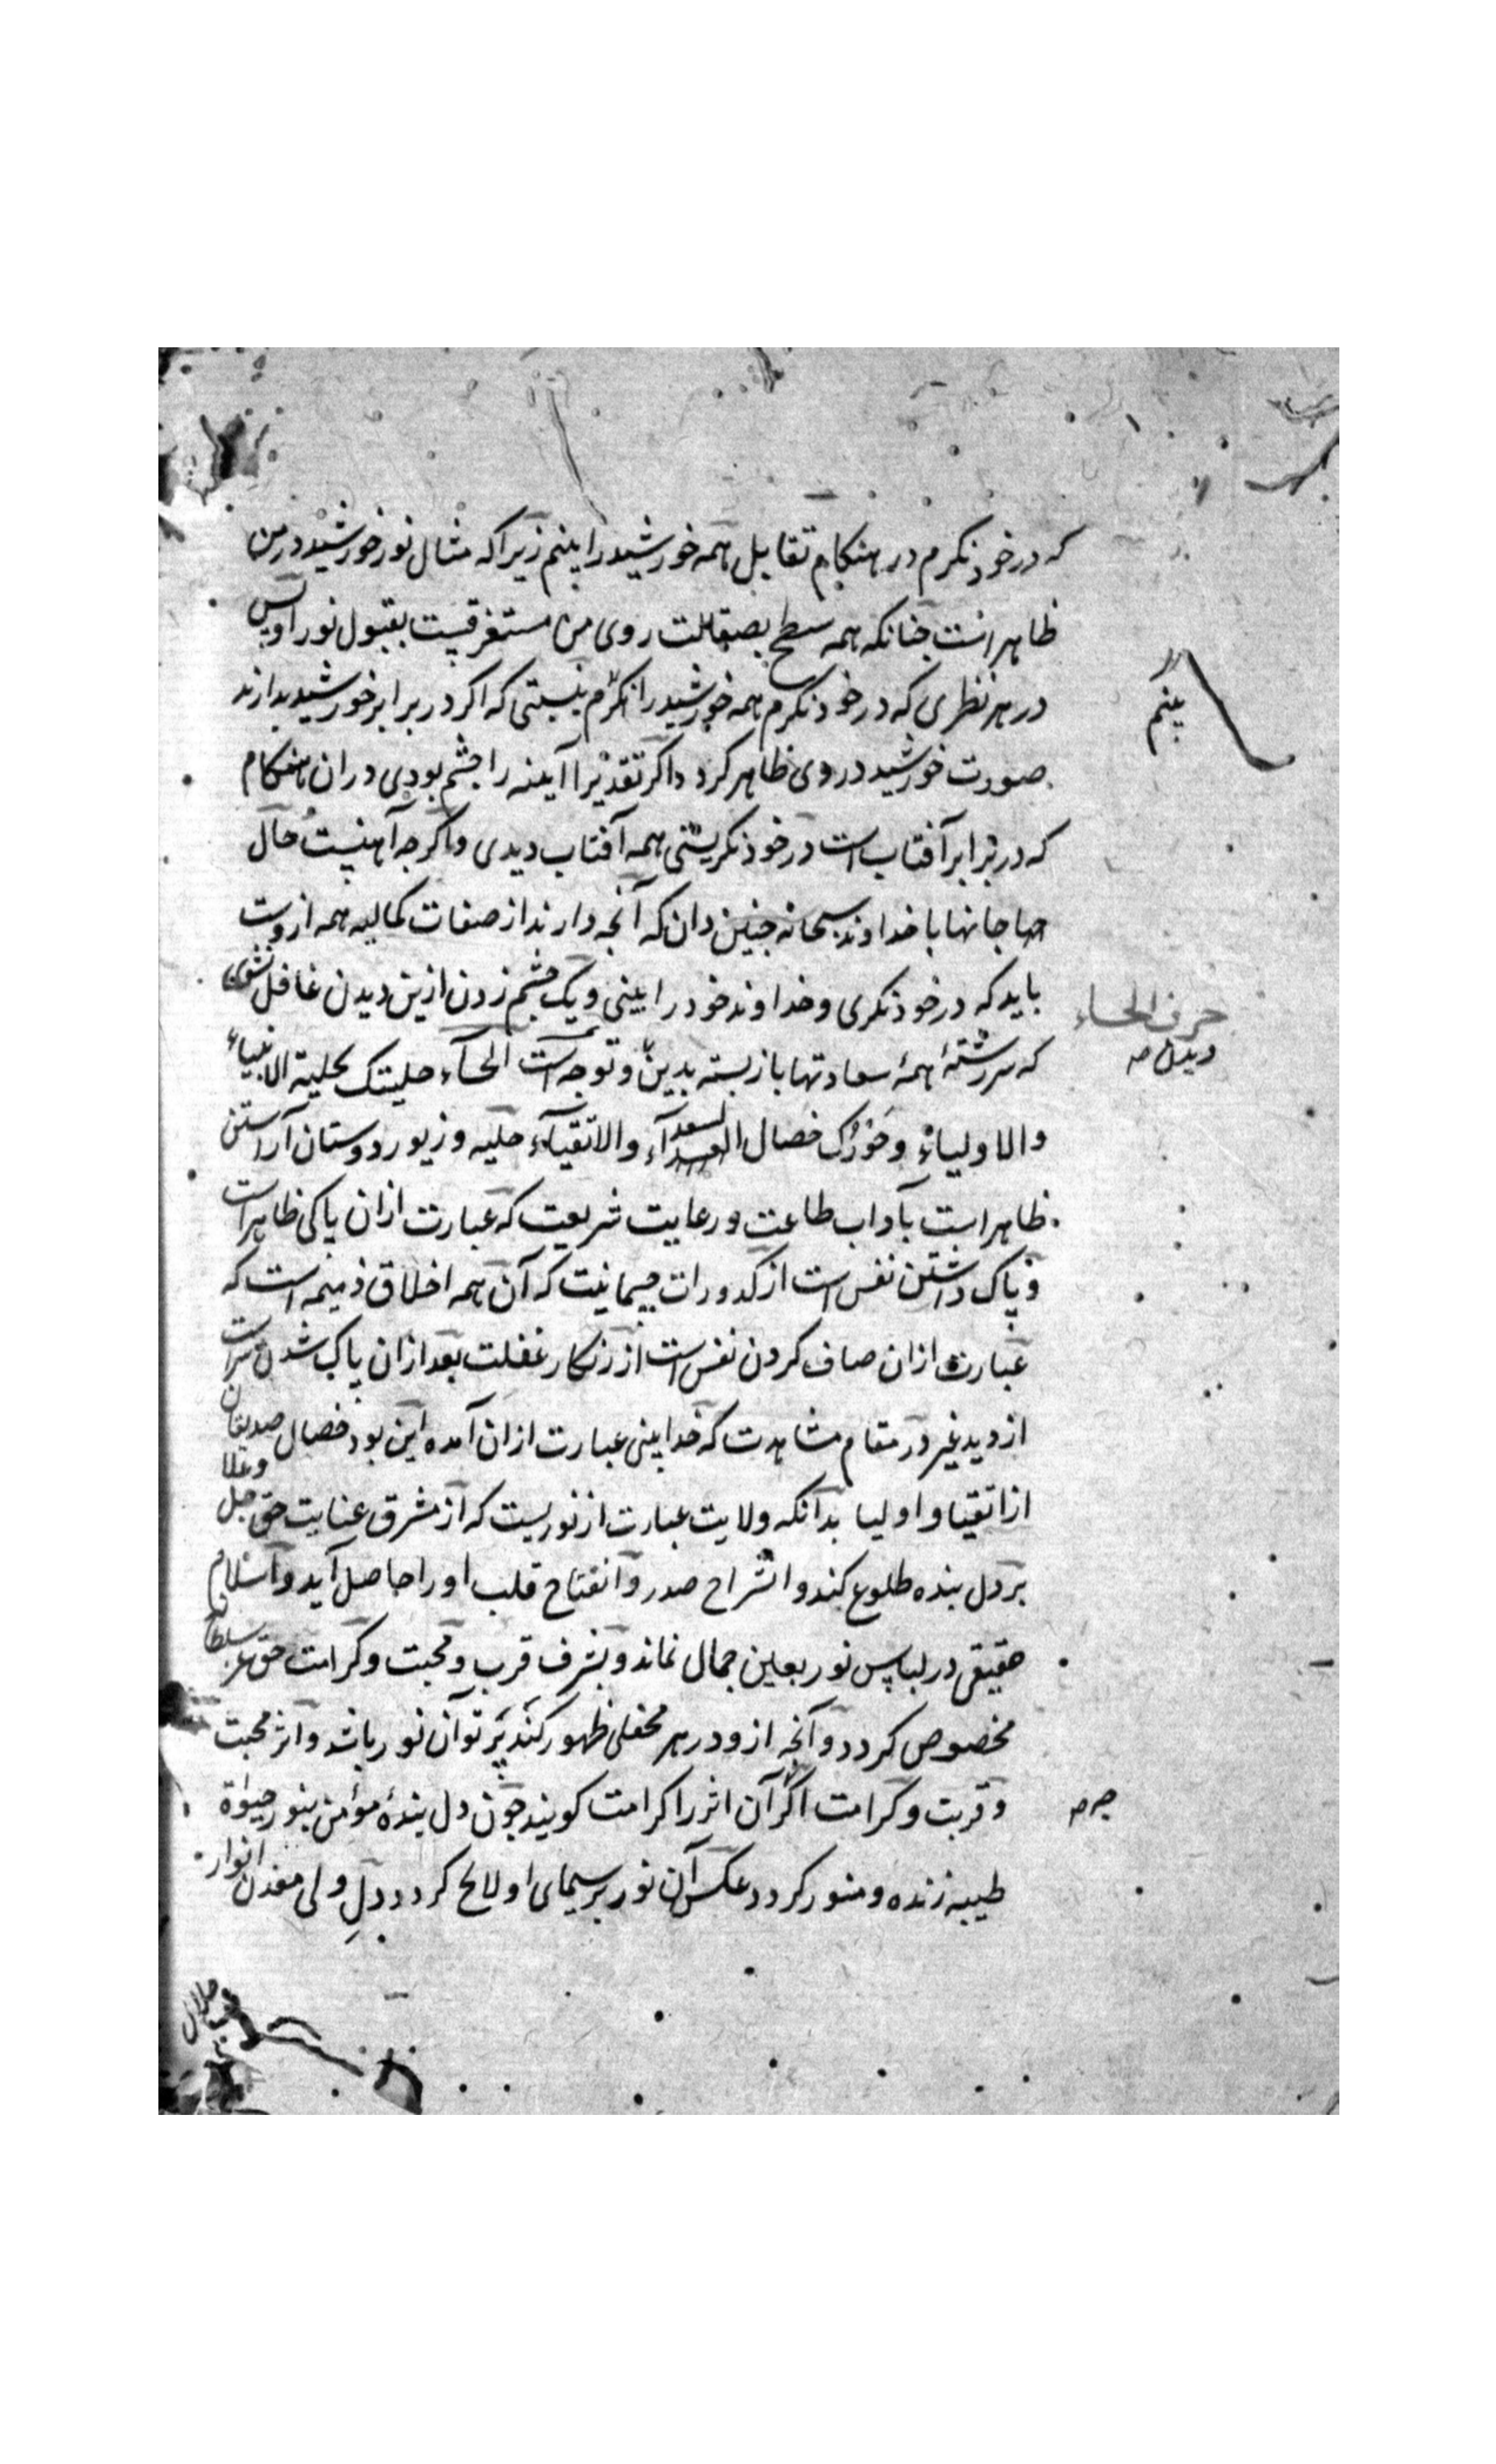 که در خود نکرم در هنکام تقابل همه خورشید را بینم زیرا که مثال نور خورشید در من
ظاهر است چنانکه همه سطح بصقالت روی من مستغرقیست بقبول نور او پس
در هر نظری که در خود نکرم همه خورشید را نکرم بنسبتی که اکر در برابر خورشید بدارند
بینم
صورت خورشید در وی ظاهر کردد اکر تقدیرا آینه را چشم بودی دران هنکام
که در برابر آفتاب است در خود نکریستی همه آفتاب دیدی و اکرچه آهنیست حال
جانها با خداوند سبحانه چنین دان که آنچه دارند از صفات کمالیه همه ازوست
باید که در خود نکری و خداوند خود را بینی و یک چشم زدن ازین دیدن غافل نشوی
حرف الحاء
دیدن صه
که سررشتهٔ همهٔ سعادتها بازبسته بدین و توجه است الحآء حلیتک بحلیة الانبیاء
والاولیاء و خصال السعدآء والاتقیآء حلیه و زیور دوستان آراستن
ظاهر است بآداب طاعت و رعایت شریعت که عبارت ازان پاکی ظاهر است
و پاک داشتن نفس است از کدورات جسمانیت که آن همه اخلاق ذمیمه است که
عبارت ازان صاف کردن نفس است از زنکار غفلت بعد ازان پاک شدن سراست
از دید غیر در مقام مشاهدت که خدابینی عبارت ازان آمده این بود خصال صدیقان
از اتقیا و اولیا بدانکه ولایت عبارت از نوریست که از مشرق عنایت حق جل وعلا
بر دل بنده طلوع کند و انشراح صدر و انفتاح قلب او را حاصل آید و اسلام
حقیقی در لباس نور بعین جمال نماند و بشرف قرب و محبت و کرامت حق عز سلطانه
مخصوص کردد و آنچه ازو در هر محفلی ظهور کند پرتو آن نور باشد و اثر محبت
و قربت و کرامت اکر آن اثر را کرامت کویند چون دل بندهٔ مؤمن بنور حیوة
چه صه
طیبه زنده و منور کردد عکس آن نور بر سیمای او لایح کردد دلِ ولی معدن انوار
جلال